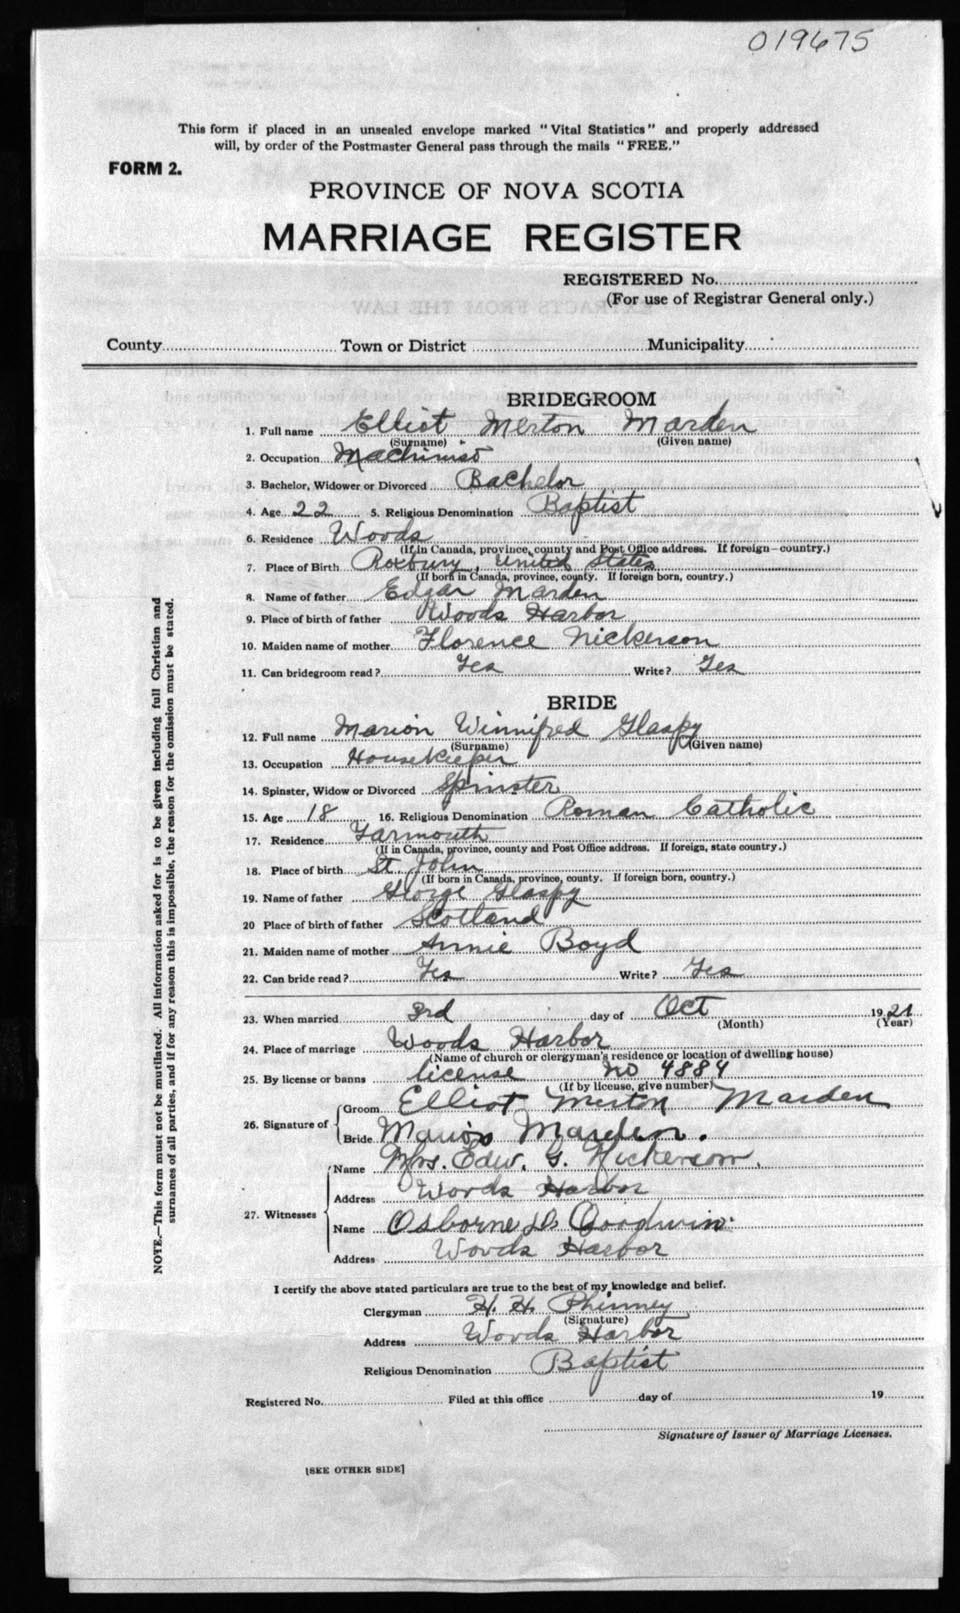 019675
This form if placed in an unsealed envelope marked "Vital Statistics" and properly addressed
will, by order of the Postmaster General pass through the mails "FREE."
FORM 2.
PROVINCE OF NOVA SCOTIA
MARRIAGE REGISTER
REGISTERED No.
(For use of Registrar General only.)
County Town or District Municipality
BRIDEGROOM
1. Full name Elliot Merton Marden
(Surname) (Given name)
2. Occupation Machinist
3. Bachelor, Widower or Divorced Bachelor
4. Age 22 5. Religious Denomination Baptist
6. Residence Woods
(If in Canada, province, county and Post Office address. If foreign—country.)
7. Place of Birth Roxbury, United States
(If born in Canada, province, county. If foreign born, country.)
8. Name of father Edgar Marden
9. Place of birth of father Woods Harbor
10. Maiden name of mother Florence Nickerson
11. Can bridegroom read? Yes Write? Yes
BRIDE
12. Full name Marion Winnifred Glaspy
(Surname) (Given name)
13. Occupation Housekeeper
14. Spinster, Widow or Divorced Spinster
15. Age 18 16. Religious Denomination Roman Catholic
17. Residence Yarmouth
(If in Canada, province, county and Post Office address. If foreign, state country.)
18. Place of birth St. John
(If born in Canada, province, county. If foreign born, country.)
19. Name of father George Glaspy
20 Place of birth of father Scotland
21. Maiden name of mother Annie Boyd
22. Can bride read? Yes Write? Yes
23. When married 3rd day of Oct 1921
(Month) (Year)
24. Place of marriage Woods Harbor
(Name of church or clergyman's residence or location of dwelling house)
25. By license or banns license no 4884
(If by license, give number)
26. Signature of Groom Elliot Merton Marden
Bride Marion Marden.
27. Witnesses Name Mrs. Edw. G. Nickerson.
Address Woods Harbor
Name Osborne D. Goodwin.
Address Woods Harbor
I certify the above stated particulars are true to the best of my knowledge and belief.
Clergyman H. H. Phinney
(Signature)
Address Woods Harbor
Religious Denomination Baptist
Registered No. Filed at this office day of 19
Signature of Issuer of Marriage Licenses.
[SEE OTHER SIDE]
NOTE.—This form must not be mutilated. All information asked for is to be given including full Christian and
surnames of all parties, and if for any reason this is impossible, the reason for the omission must be stated.